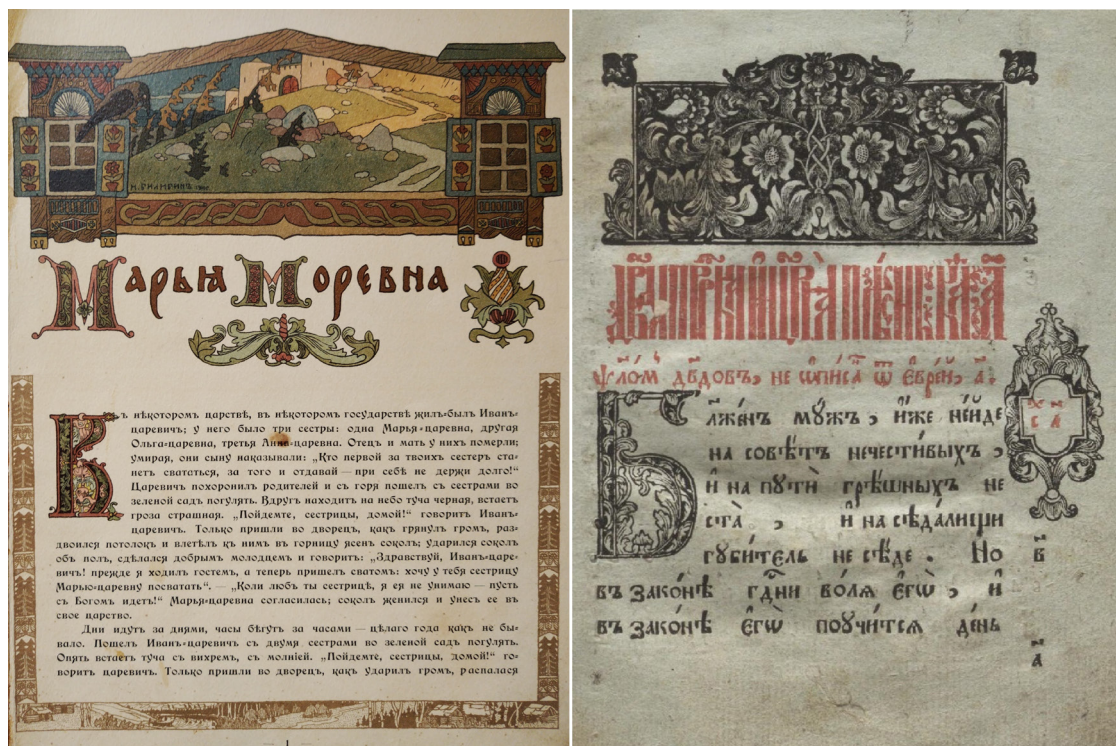 И. БИЛИБИНЪ 1900
Марья Моревна
Въ нѣкоторомъ царствѣ, въ нѣкоторомъ государствѣ жилъ-былъ Иванъ-
царевичъ; у него было три сестры: одна Марья-царевна, другая
Ольга-царевна, третья Анна-царевна. Отецъ и мать у нихъ померли;
умирая, они сыну наказывали: „Кто первой за твоихъ сестеръ ста-
нетъ свататься, за того и отдавай — при себѣ не держи долго!“
Царевичъ похоронилъ родителей и съ горя пошелъ съ сестрами во
зеленой садъ погулять. Вдругъ находитъ на небо туча черная, встаетъ
гроза страшная. „Пойдемте, сестрицы, домой!“ говоритъ Иванъ-
царевичъ. Только пришли во дворецъ, какъ грянулъ громъ, раз-
двоился потолокъ и влетѣлъ къ нимъ въ горницу ясенъ соколъ; ударился соколъ
объ полъ, сдѣлался добрымъ молодцемъ и говоритъ: „Здравствуй, Иванъ-царе-
вичъ! прежде я ходилъ гостемъ, а теперь пришелъ сватомъ: хочу у тебя сестрицу
Марью-царевну посватать“. — „Коли любъ ты сестрицѣ, я ея не унимаю — пусть
съ Богомъ идетъ!“ Марья-царевна согласилась; соколъ женился и унесъ ее въ
свое царство.
Дни идутъ за днями, часы бѣгутъ за часами — цѣлаго года какъ не бы-
вало. Пошелъ Иванъ-царевичъ съ двумя сестрами во зеленой садъ погулять.
Опять встаетъ туча съ вихремъ, съ молніей. „Пойдемте, сестрицы, домой!“ го-
воритъ царевичъ. Только пришли во дворецъ, какъ ударилъ громъ, распалася
1
ѱало́мъ дв҃довъ, не ѡ҆пи́санъ ѿ є҆врє́й, а҃.
Бл҃же́нъ мꙋ́жъ, и҆́же не и҆́де
на совѣ́тъ нечести́выхъ,
и҆ на пꙋтѝ грѣ́шныхъ не
ста̀, и҆ на сѣда́лищи
гꙋби́тель не сѣ́де. Но
въ зако́нѣ гдⷭ҇ни во́лѧ є҆гѡ̀, и҆
въ зако́нѣ є҆гѡ̀ поꙋчи́тсѧ де́нь
х҃ъ
с а
в҃
а҃